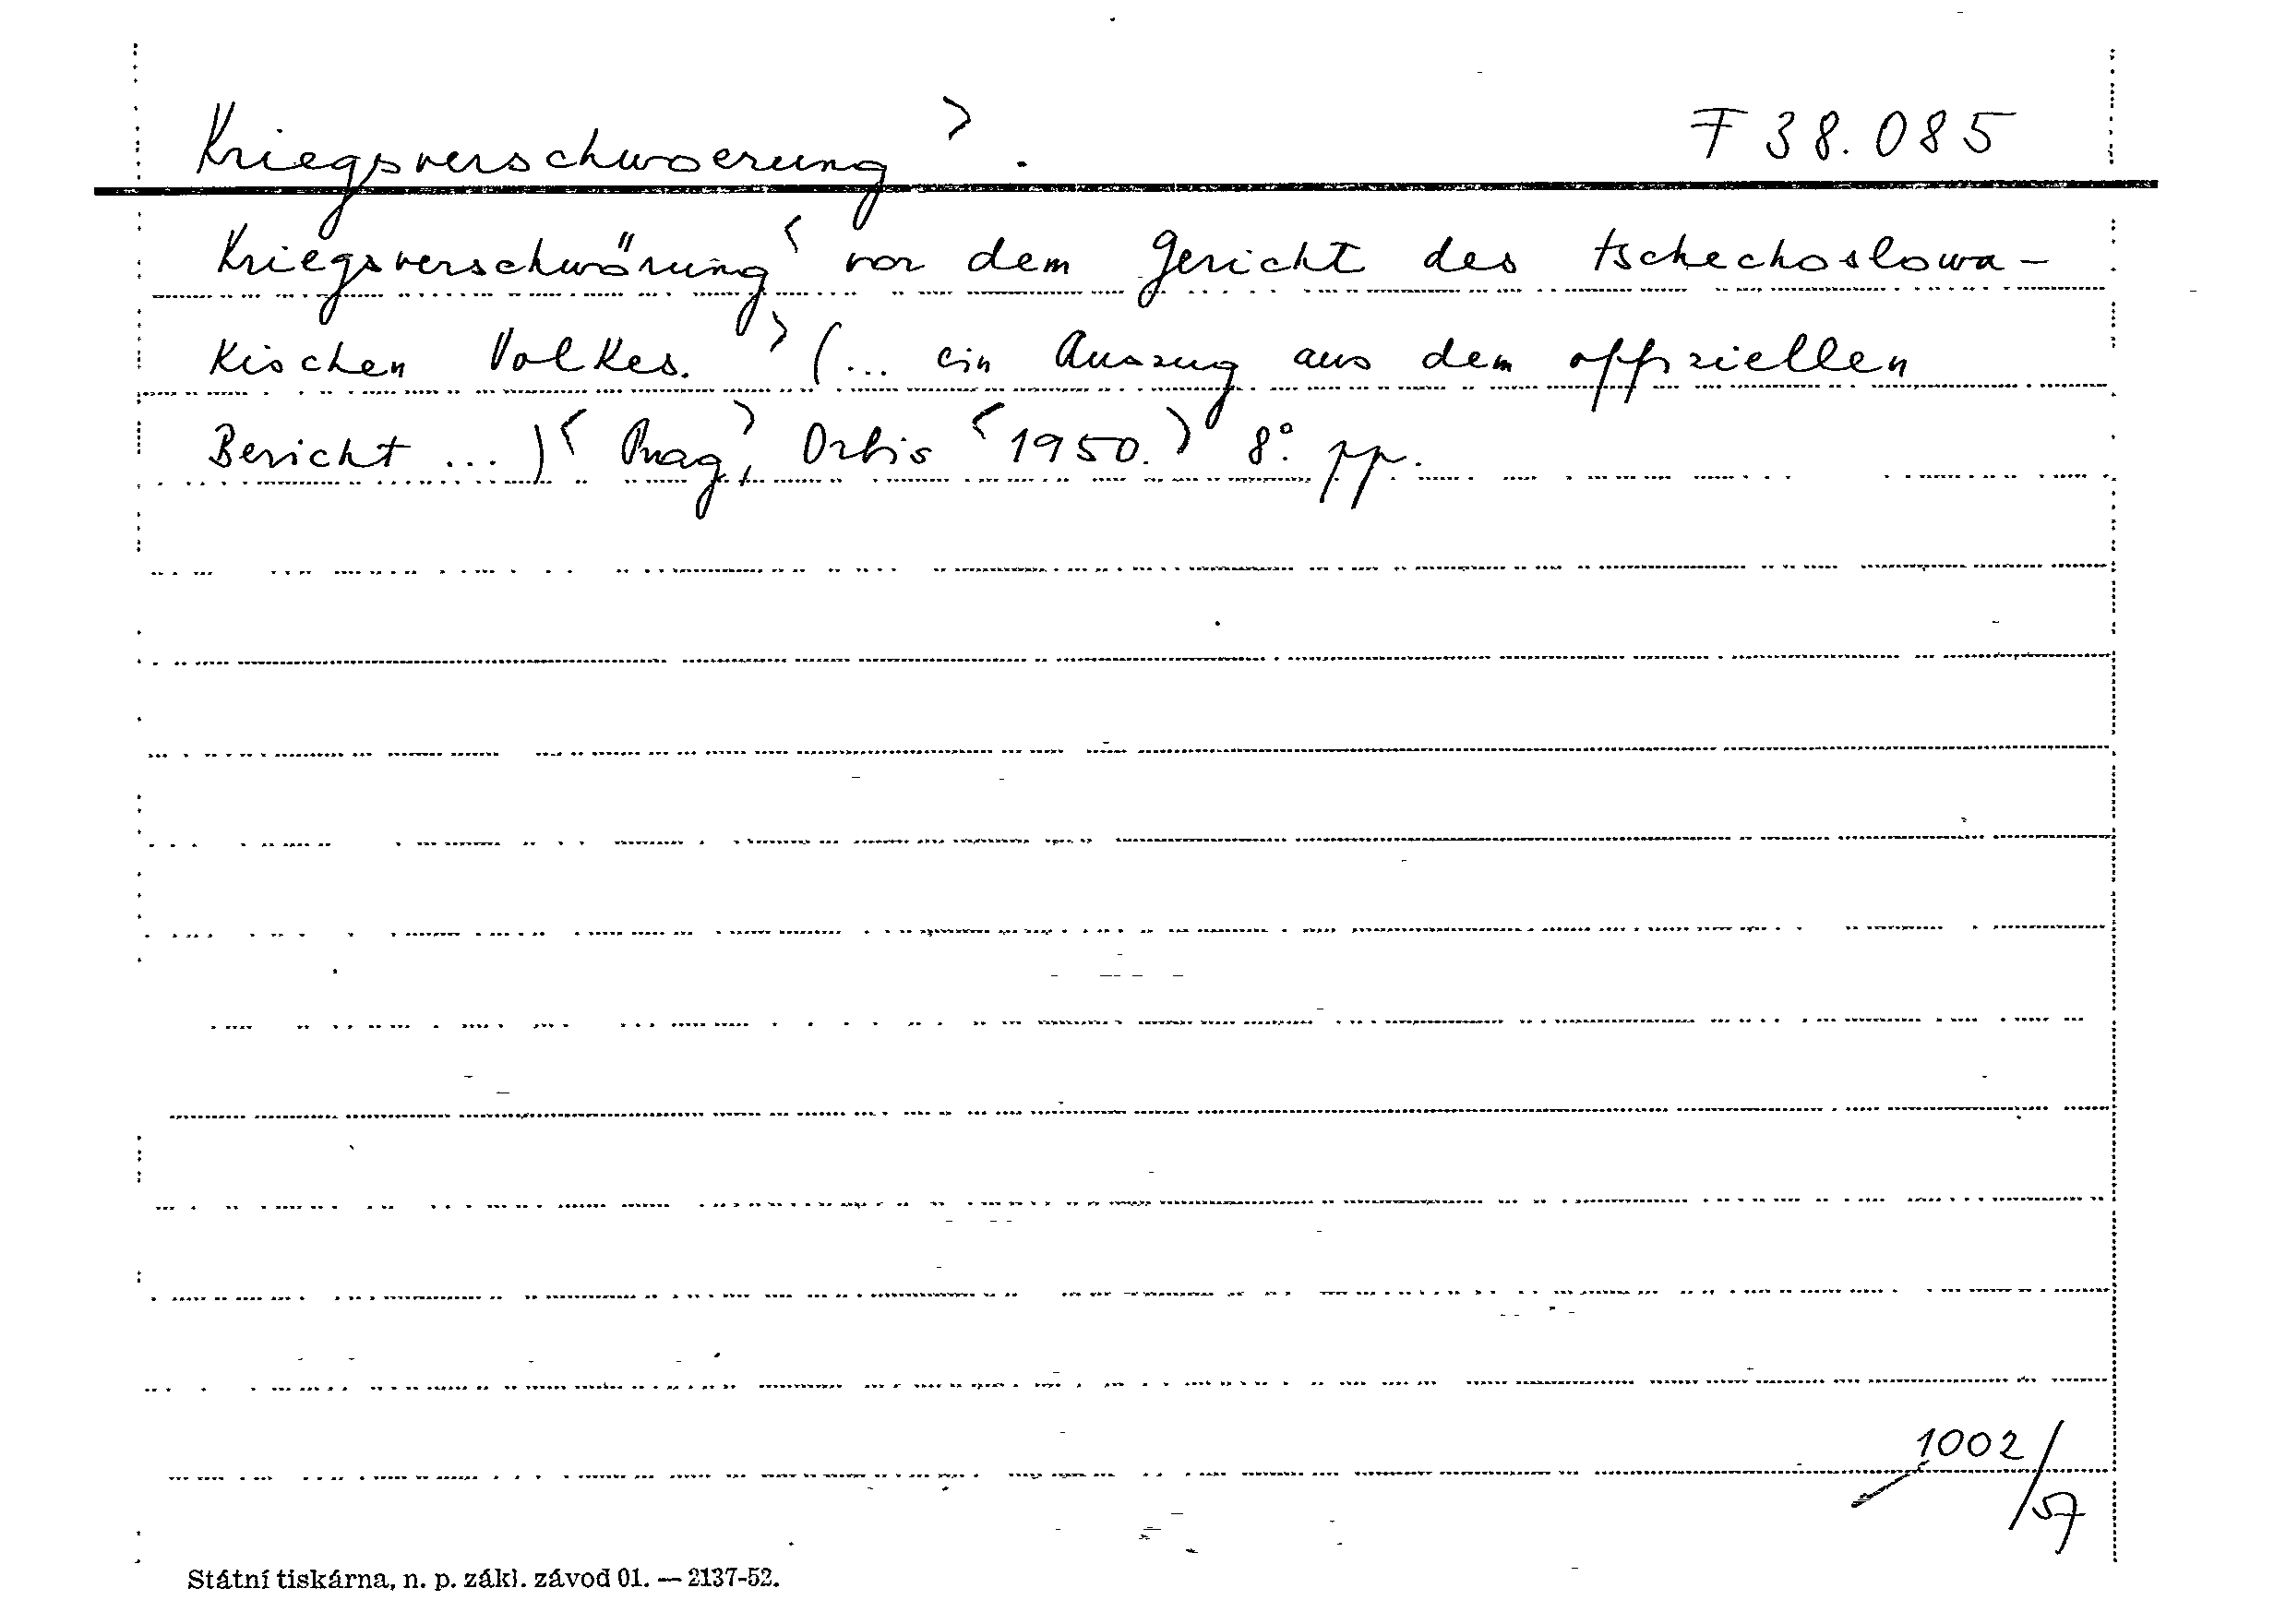 Kriegsverschwoerung > . F 38.085
Kriegsverschwörung < vor dem Gericht des tschechoslowa-
kischen Volkes. > (... ein Auszug aus dem offiziellen
Bericht ... ) < Prag, > Orbis < 1950. > 8°. pp.
1002/57
Státní tiskárna, n. p. zákl. závod 01. — 2137-52.